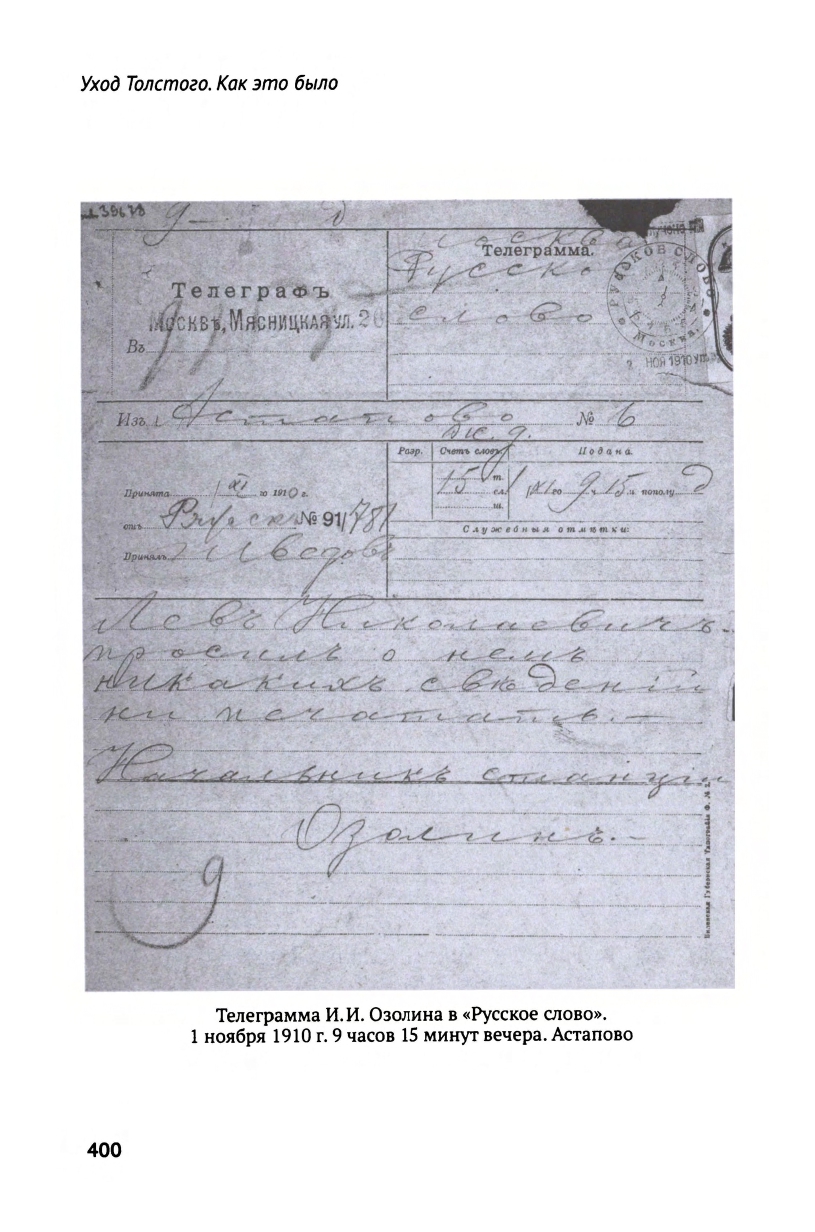 Уход Толстого. Как это было
Телеграмма.
Русско
слово
Телеграфъ
МОСКВѢ, МЯСНИЦКАЯ УЛ. 26
Въ
РУССКОЕ СЛОВО
Москва.
НОЯ 1910
Изъ Астапово № 6
ж. д.
Разр. Счетъ словъ Подана
Принята 1 XI го 1910 г.
15 т. сл. ш.
1 XI го 9 ч 15 м. пополу д
отъ Ряжска № 91/781
Служебныя отмѣтки:
Принялъ Шведовъ
Левъ Николаевичъ
просилъ о немъ
никакихъ свѣденій
ни печатать.—
Начальникъ станціи
Озолинъ.—
9
Телеграмма И.И. Озолина в «Русское слово».
1 ноября 1910 г. 9 часов 15 минут вечера. Астапово
400